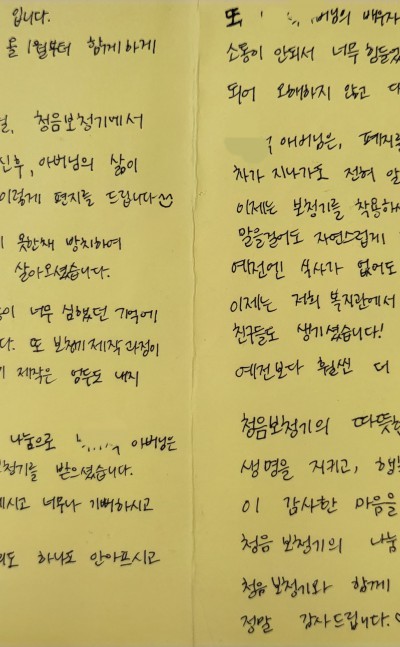 입니다.
올 1월부터 함께하게
청음보청기에서
신후, 아버님의 삶이
이렇게 편지를 드립니다
못한채 방치하여
살아오셨습니다.
너무 심했던 기억에
다. 또 보청기 제작 과정이
제작은 엄두도 내지
나눔으로 아버님은
보청기를 받으셨습니다.
계시고 너무나 기뻐하시고
하나도 안아프시고
또 아버님의 배우자
소통이 안되서 너무 힘들었
되어 오해하지 않고
아버님은, 폐지를
차가 지나가도 전혀 알
이제는 보청기를 착용하시
말을걸어도 자연스럽게
예전엔 식사가 없어도
이제는 저희 복지관에서
친구들도 생기셨습니다!
예전보다 훨씬 더
청음보청기의 따뜻한
생명을 지키고, 행복
이 감사한 마음을
청음 보청기의 나눔
청음 보청기와 함께
정말 감사드립니다. ♡